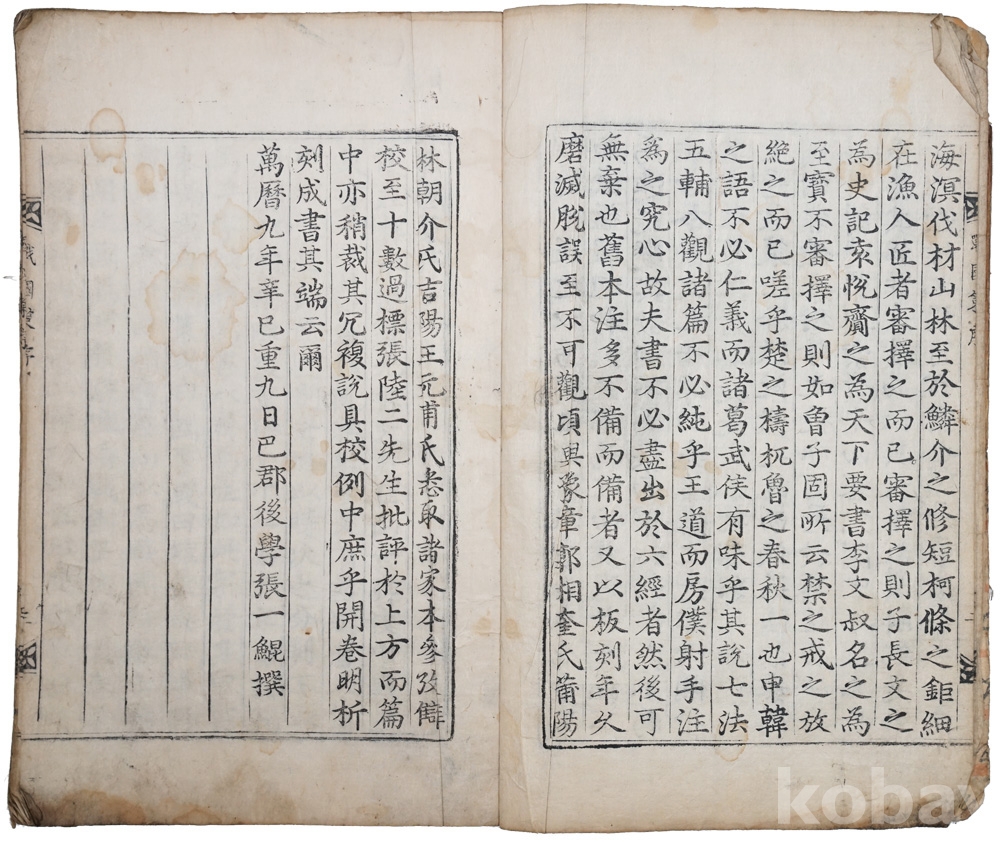 海溟伐材山林至於鱗介之修短柯條之鉅細
在漁人匠者審擇之而已審擇之則子長文之
為史記袁悅齎之為天下要書李文叔名之為
至寶不審擇之則如曾子固所云禁之戒之放
絕之而已嗟乎楚之檮杌魯之春秋一也申韓
之語不必仁義而諸葛武侯有味乎其說七法
五輔八觀諸篇不必純乎王道而房僕射手注
為之究心故夫書不必盡出於六經者然後可
無棄也舊本注多不備而備者又以板刻年久
磨滅脫誤至不可觀頃與豫章郭相奎氏莆陽
林朝介氏吉陽王元甫氏悉取諸家本參攷讎
校至十數過標張陸二先生批評於上方而篇
中亦稍裁其冗複說具校例中庶乎開卷明析
刻成書其端云爾
萬曆九年辛巳重九日巴郡後學張一鯤撰
戰國策序
koba